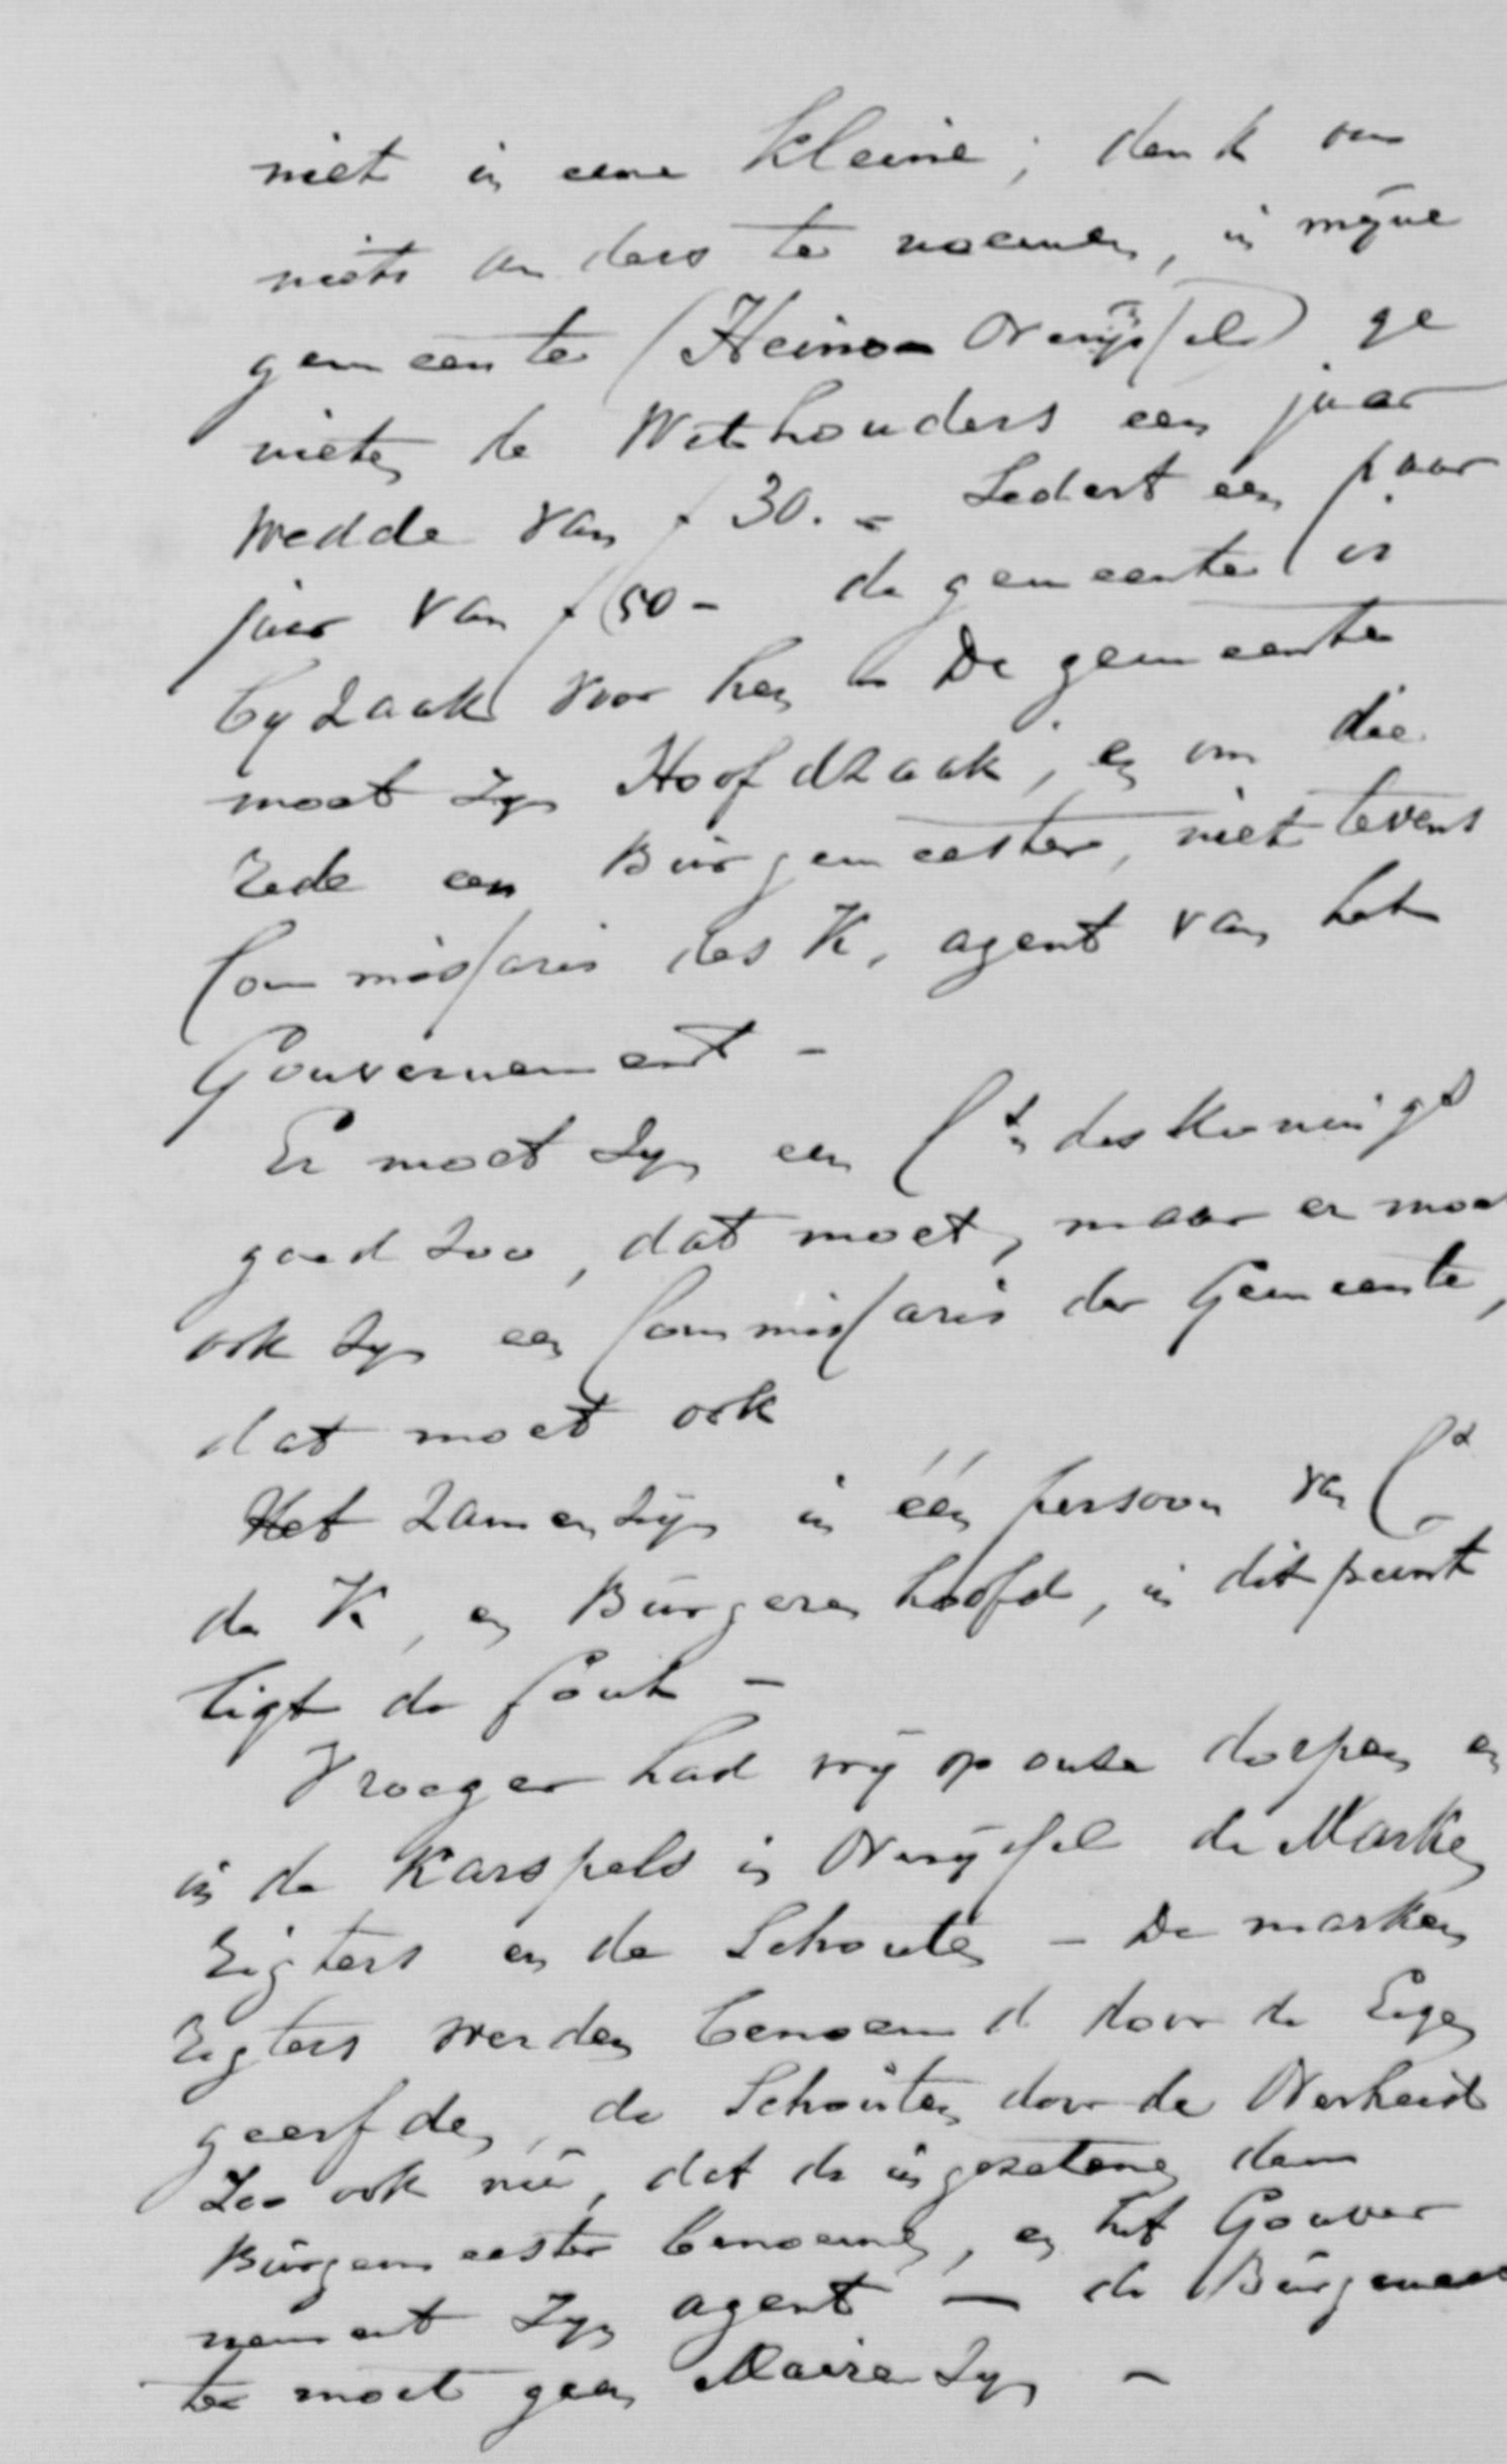 niet in eene kleine; denk om
niets anders te noemen, in mijne
gemeente (Heino Overijssel) ge
nieten de Wethouders een jaar
wedde van f 30.- Sedert een paar
jaar van f 50- de gemeente is
byzaak voor hen - De gemeente
moet zyn Hoofdzaak, en om die
rede een Burgemeester, niet tevens
Commissaris des K, agent van het
Gouvernement -
Er moet zyn een Cs des Konings
goed zoo, dat moet, maar er moet
ook zyn een Commissaris der Gemeente,
dat moet ook
Het zamenzijn in één persoon van Cs
de K, en Burgeren hoofd, in dit punt
ligt de fout -
Vroeger had mij op onze dorpen en
in de Karspels in Overijssel de Marken
rigters en de Schouten - De marken
rigters werden benoemd door de Eigen
geerfden, de Schouten door de Overheid
Zoo ook nu, dat de ingezetenen dan
Burgemeester benoemen, en het Gouver
nement zyn agent - de Burgemees
ter moet geen Maire zyn -